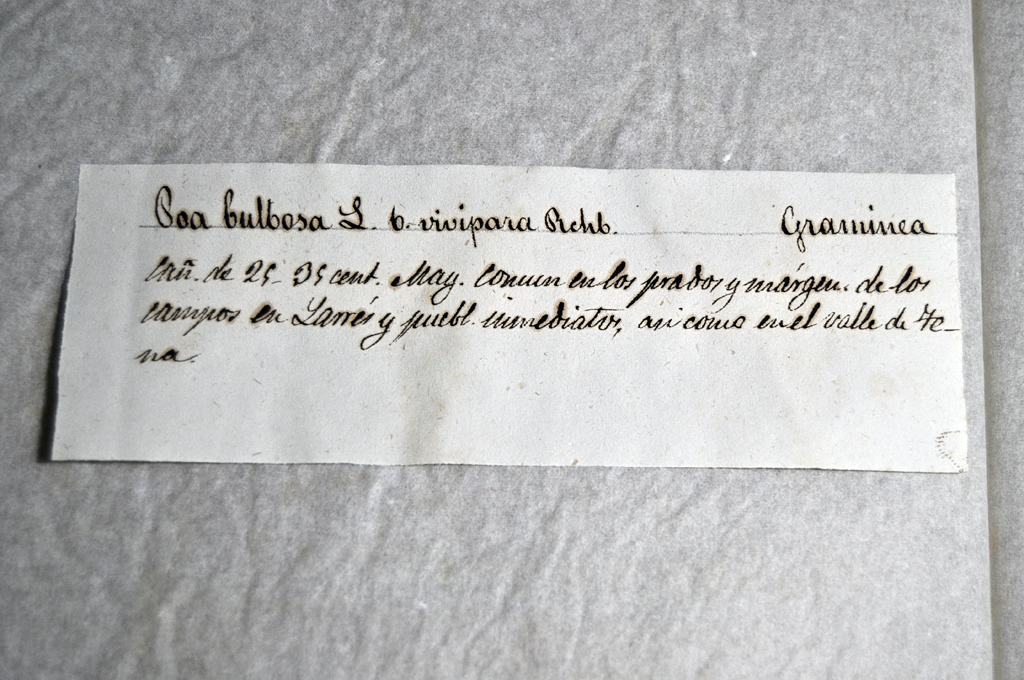 Poa bulbosa L. b. vivipara Rchb. Graminea
Cañ. de 25-35 cent. May. Comun en los prados y márgen. de los
campos en Larrés y puebl. inmediatos, asi como en el valle de Te-
na.